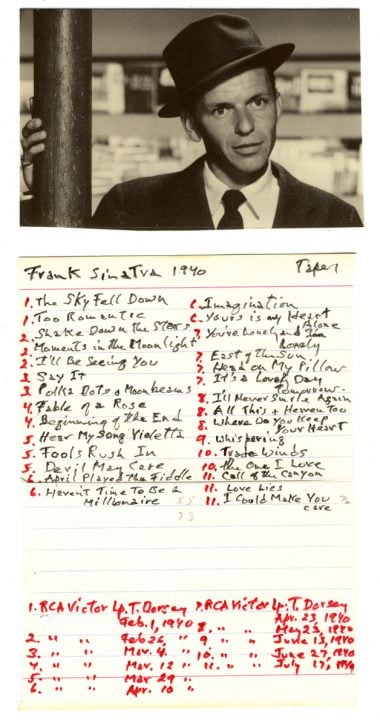 Frank Sinatra 1940
Tape 1
1. The Sky Fell Down
1. Too Romantic
2. Shake Down the Stars
2. Moments in the Moonlight
2. I'll Be Seeing You
3 Say It
3 Polka Dots & Moonbeams
4 Fable of a Rose
4. Beginning of the End
5. Hear My Song Violetta
5. Fools Rush In
5. Devil May Care
6. April Played The Fiddle
6. Haven't Time To Be A
Millionaire 55
73
6. Imagination
6. Yours is my Heart
Alone
7. You're Lonely and I'm
Lonely
7. East of the Sun
7. Head on My Pillow
7. It's a Lovely Day
Tomorrow
8. I'll Never Smile Again
8. All This & Heven Too
8. Where Do You Keep
Your Heart
9. Whispering
10. Trade Winds
10. The One I Love
11. Call of the Canyon
11. Love Lies
11. I Could Make You
care
1. RCA Victor Lp. T. Dorsey
Feb. 1, 1940
2. " " Feb 26, "
3. " " Mar. 4. "
4. " " Mar. 12 "
5. " " Mar 29 "
6. " " Apr. 10 "
7. RCA Victor Lp. T. Dorsey
Apr. 23, 1940
8. " " May 23, 1940
9 " " June 13, 1940
10. " " June 27, 1940
11. " " July 17, 1940